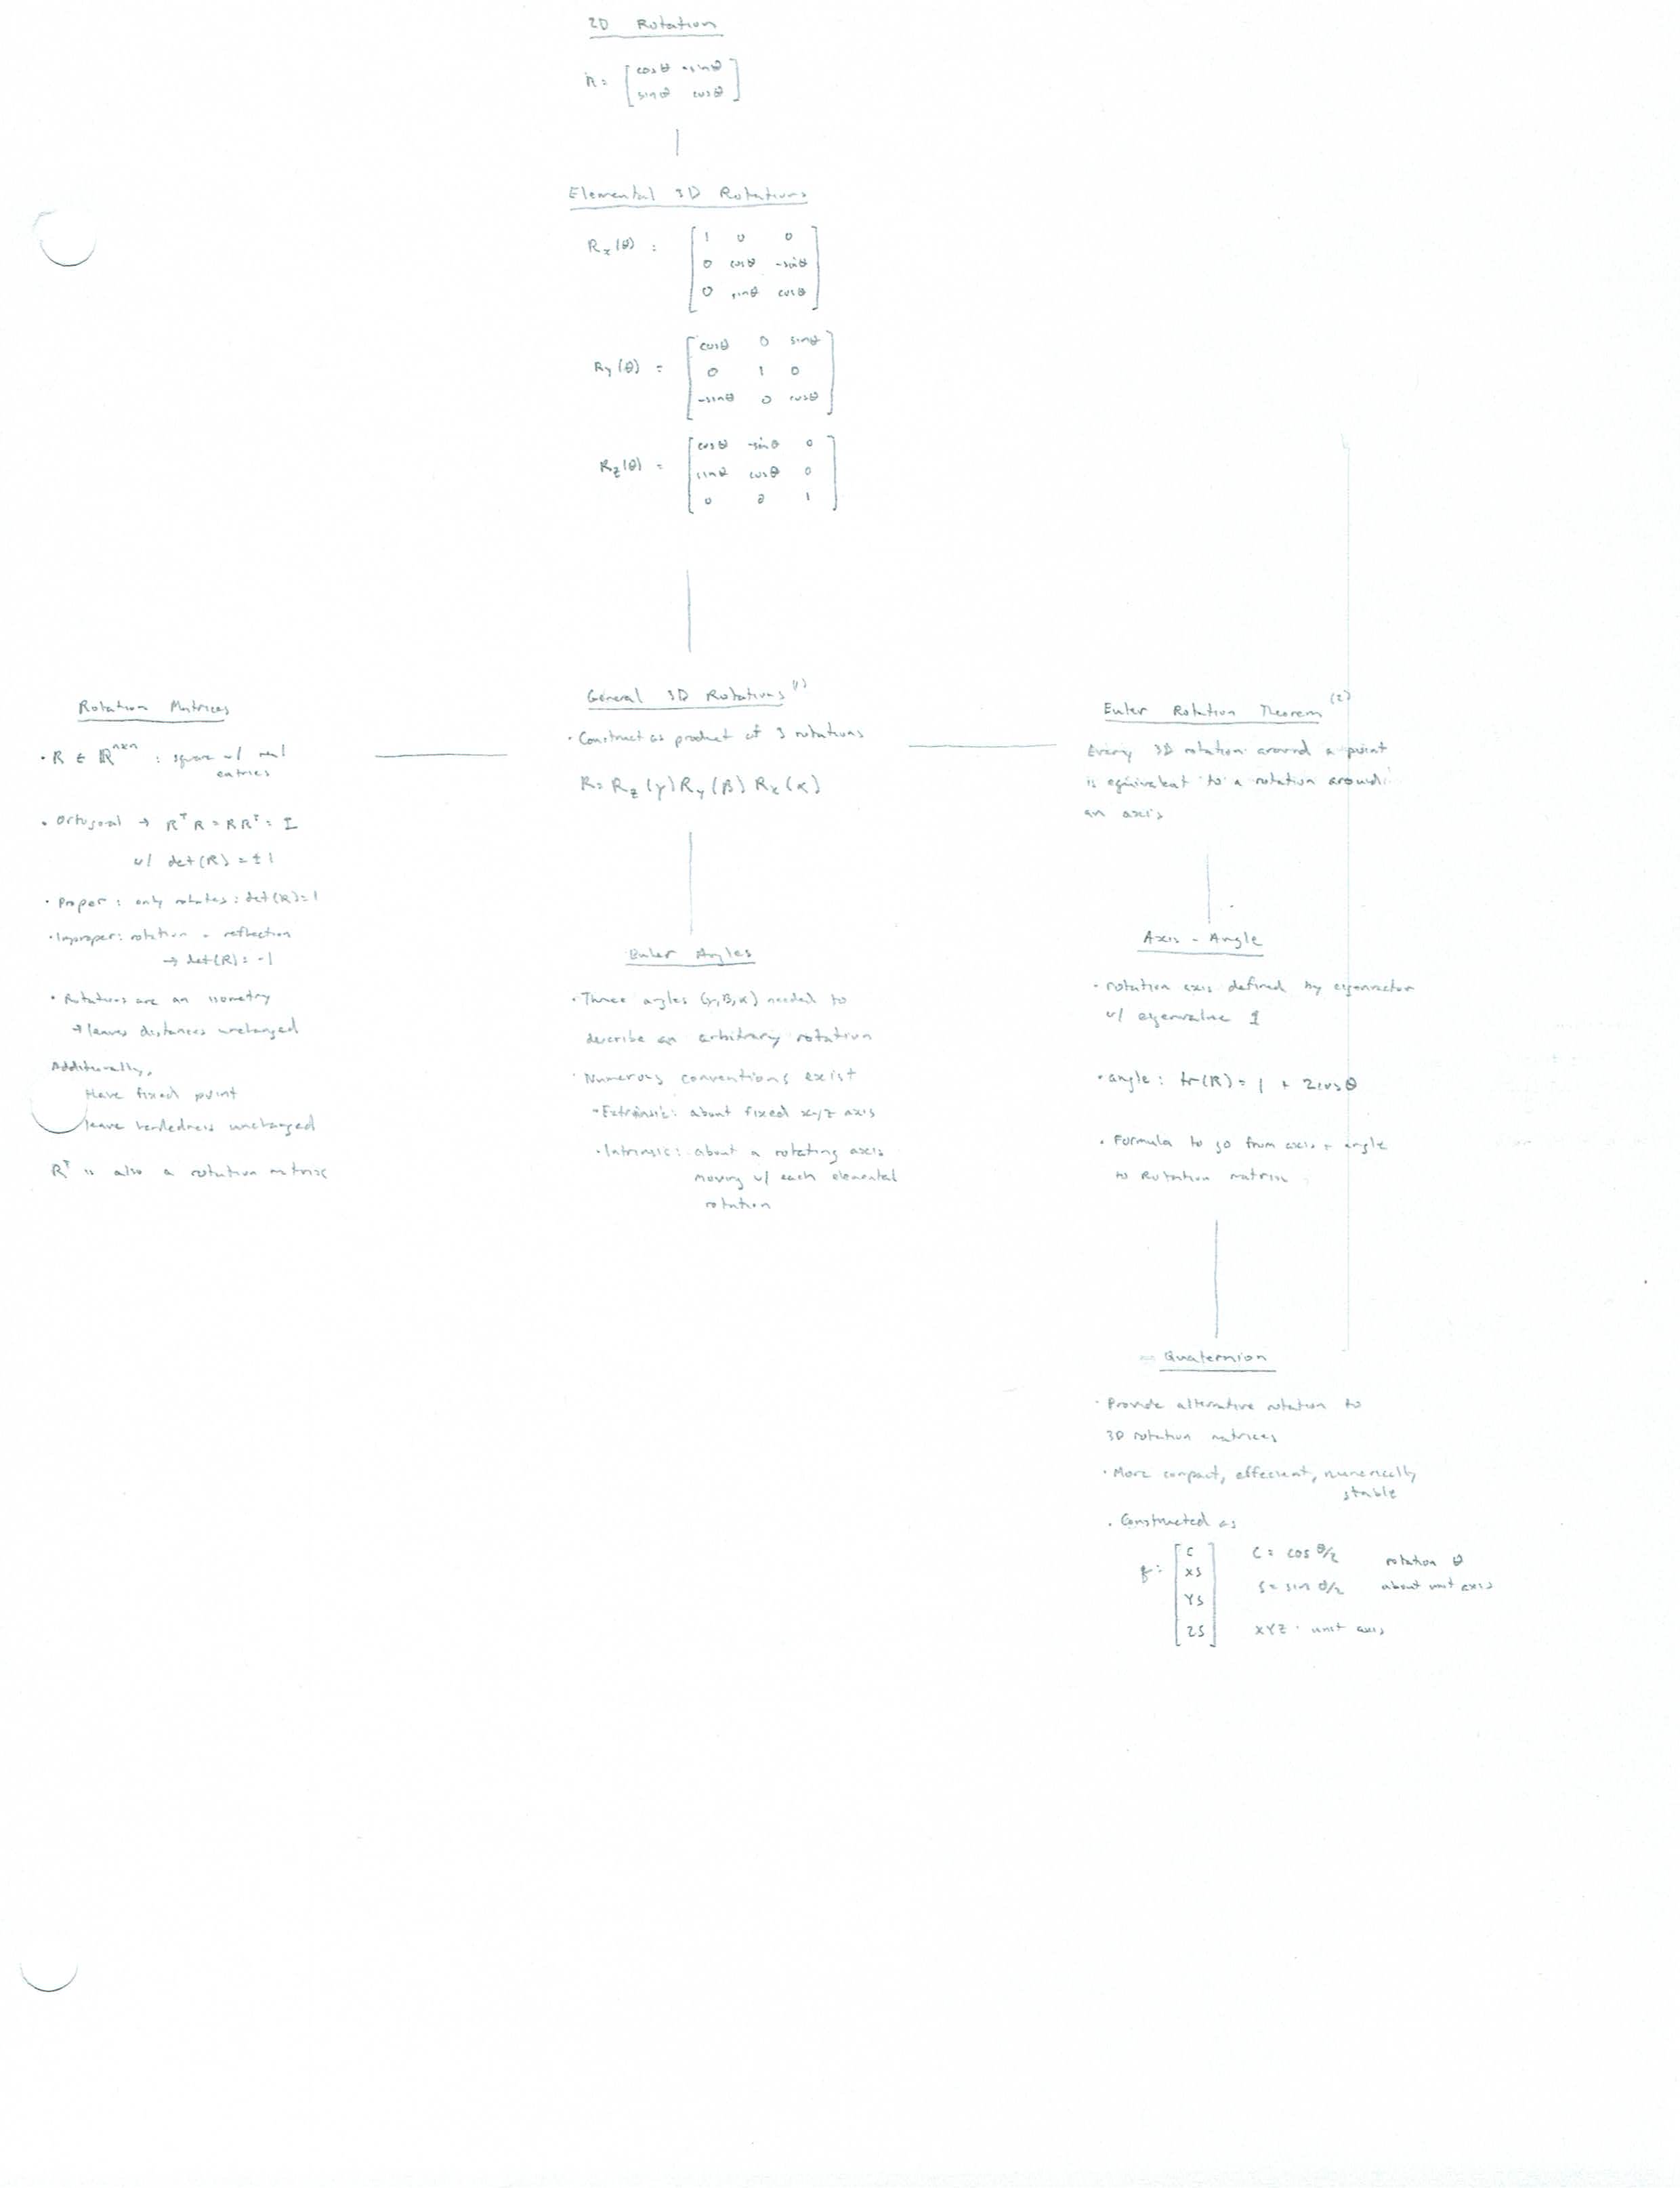 2D Rotation
R = [ cosθ -sinθ
sinθ cosθ ]
Elemental 3D Rotations
Rx(θ) : [ 1 0 0
0 cosθ -sinθ
0 sinθ cosθ ]
Ry(θ) = [ cosθ 0 sinθ
0 1 0
-sinθ 0 cosθ ]
Rz(θ) = [ cosθ -sinθ 0
sinθ cosθ 0
0 0 1 ]
Rotation Matrices
• R ∈ ℝⁿˣⁿ : square w/ real
entries
• Ortogonal → RᵀR = RRᵀ = I
w/ det(R) = ±1
• Proper : only rotates : det(R)=1
• Improper: rotation + reflection
→ det(R) = -1
• Rotations are an isometry
→ leaves distances unchanged
Additionally,
Have fixed point
leave handedness unchanged
Rᵀ is also a rotation matrix
General 3D Rotations (1)
• Construct as product of 3 rotations
R = Rz(γ) Ry(β) Rx(α)
Euler Angles
• Three angles (γ,β,α) needed to
describe an arbitrary rotation
• Numerous conventions exist
• Extrinsic: about fixed xyz axis
• Intrinsic: about a rotating axis
moving w/ each elemental
rotation
Euler Rotation Theorem (2)
Every 3D rotation around a point
is equivalent to a rotation around
an axis
Axis - Angle
• rotation axis defined by eigenvector
w/ eigenvalue 1
• angle : tr(R) = 1 + 2cosθ
• Formula to go from axis + angle
to Rotation matrix
Quaternion
• Provide alternative rotation to
3D rotation matrices
• More compact, effecient, numerically
stable
• Constructed as
q = [ C
XS
YS
ZS ]
C = cos θ/2
S = sin θ/2
XYZ · unit axis
rotation θ
about unit axis